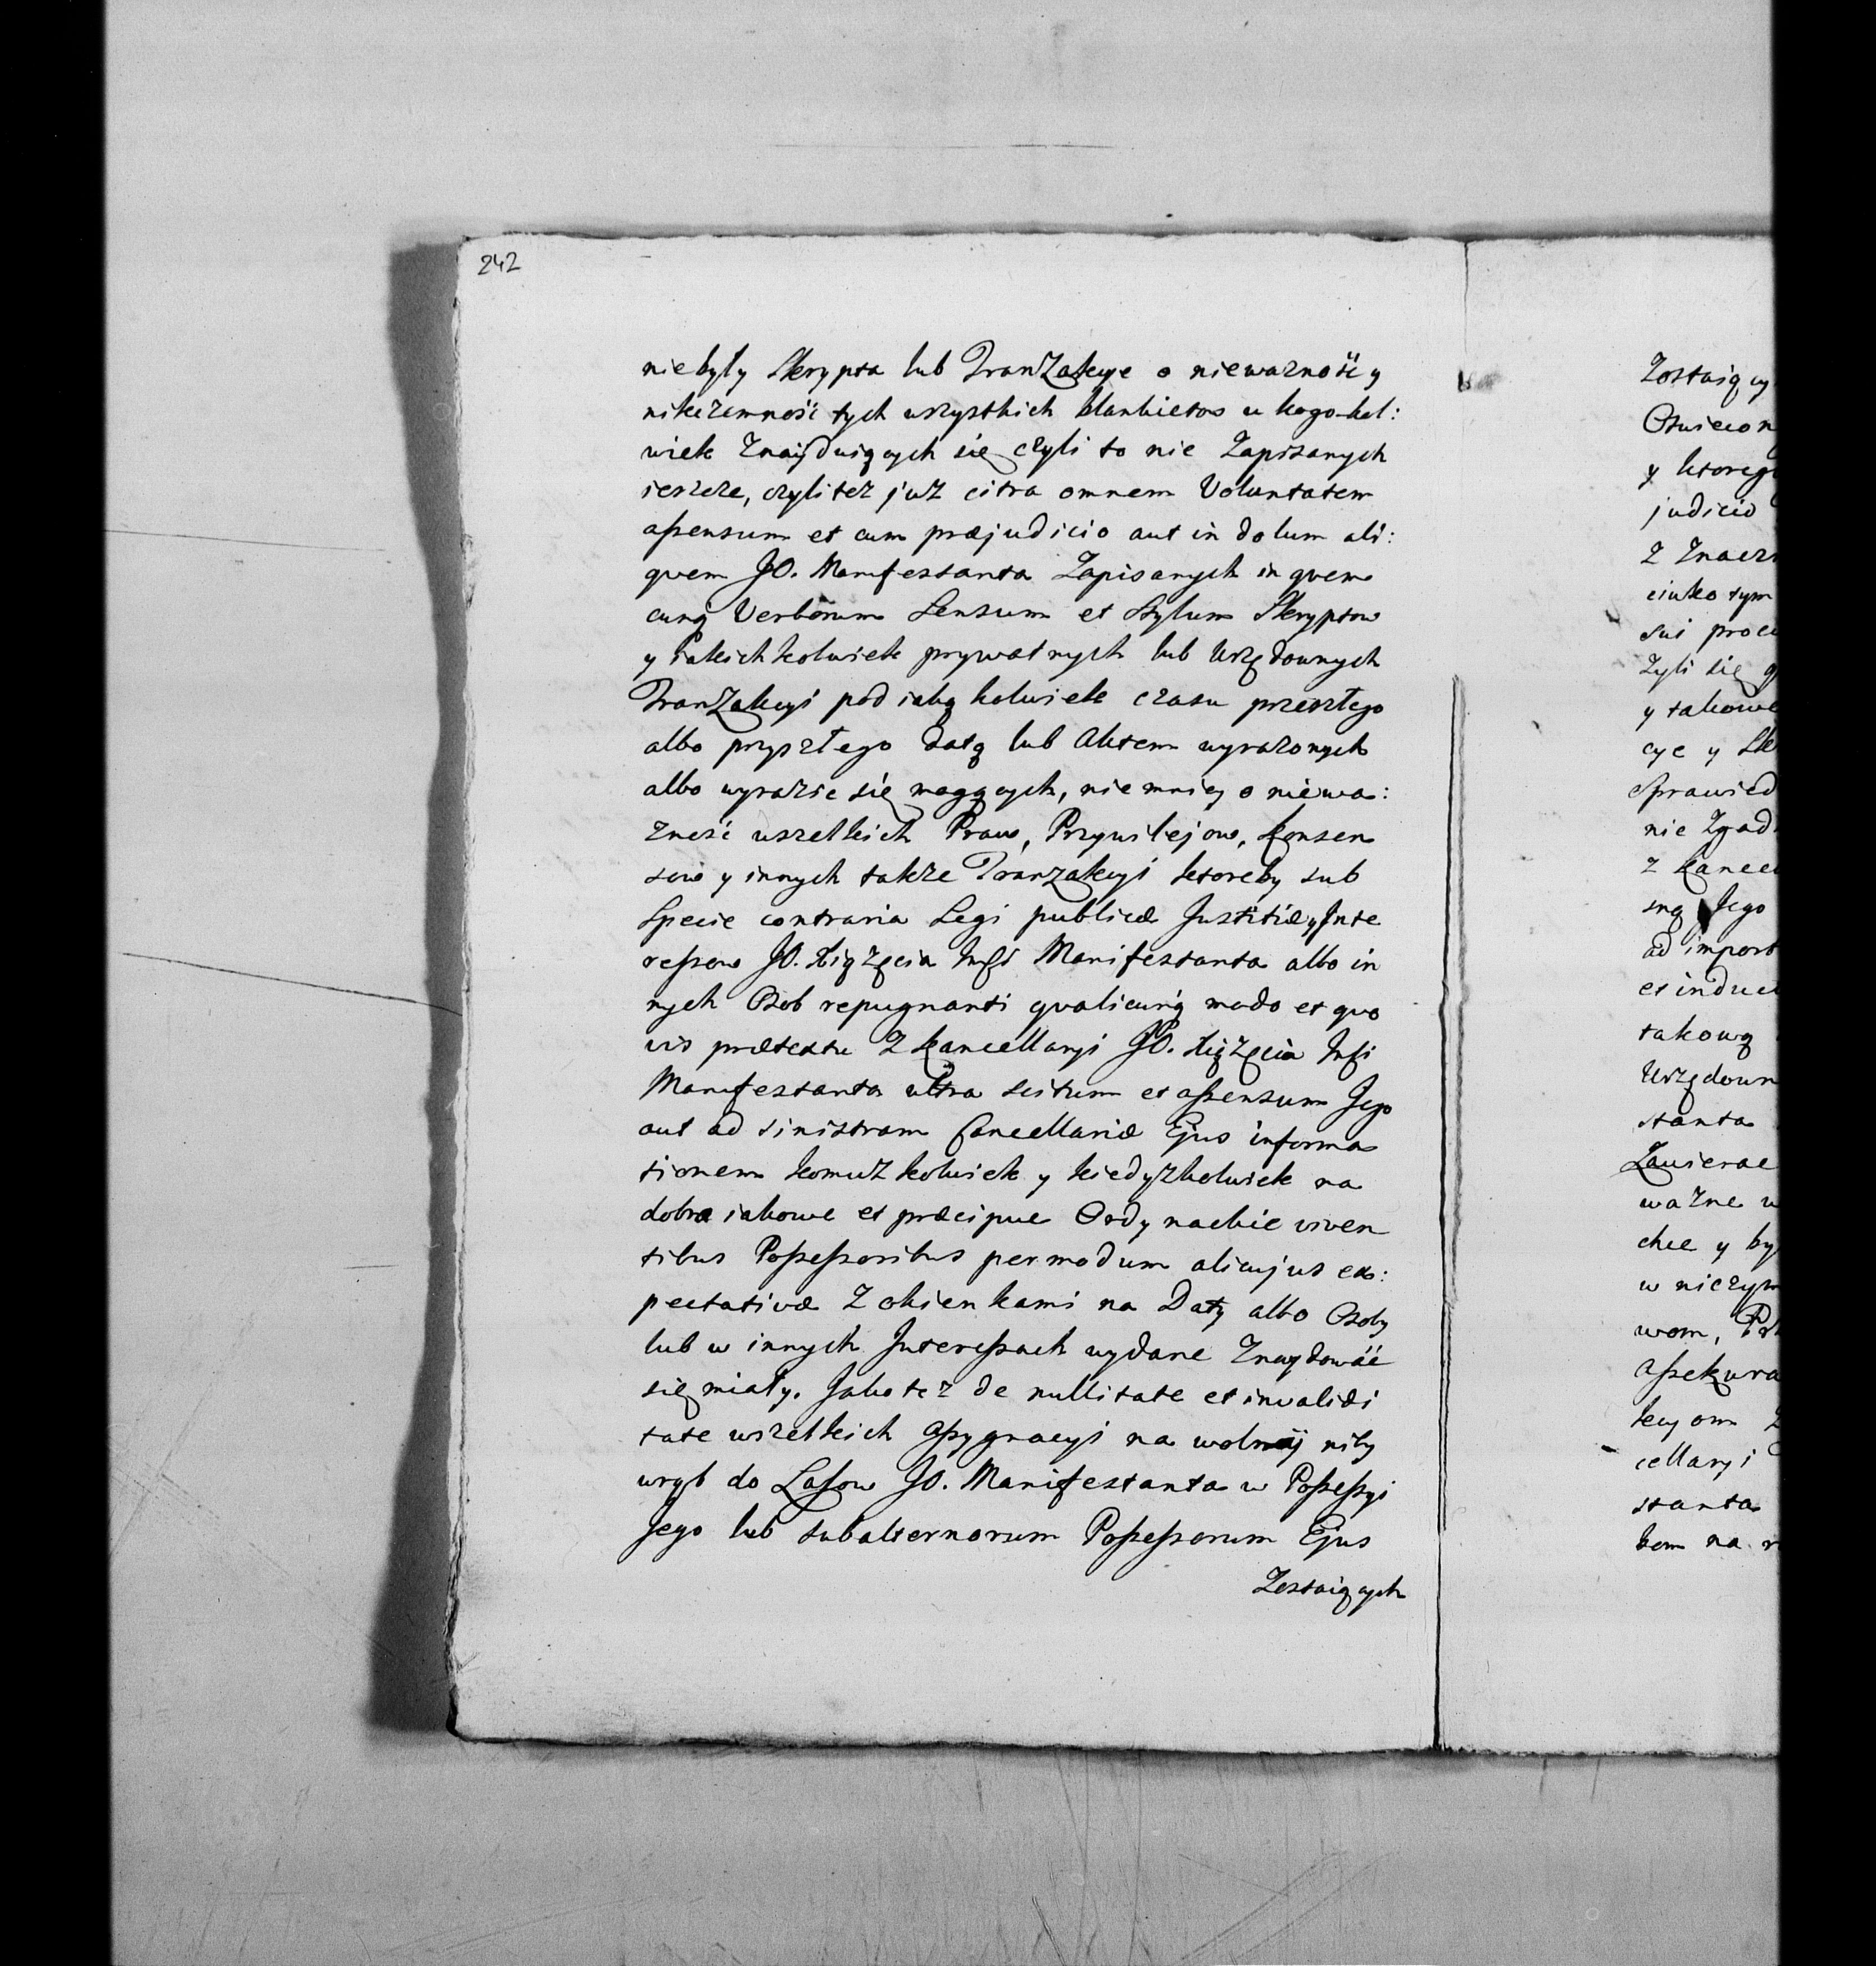 242
niebyły Skrypta lub Tranzakcye o nieważność y
nikczemność tych wszystkich blankietow u kogo-kol:
wiek Znayduiących się czyli to nie Zapisanych
ieszcze, czyli też już citra omnem Voluntatem
assensum et cum præjudicio aut in dolum ali:
quem JO. Manifestanta Zapisanych in quem
cunq Verborum Sensum et Stylum Skryptow
y iakichkolwiek prywatnych lub Urzędownych
Tranzakcyi pod iaką kolwiek czasu przeszłego
albo przyszłego datą lub Aktem wyrażonych
albo wyrazic się mogących, niemniey o niewa:
żność wszelkich Praw, Przywilejow, Konsen
sow y innych także Tranzakcyi ktoreby sub
Specie contraria Legi publicæ Justitiæ y Inte
ressow JO. Xiążęcia Imsi Manifestanta albo in
nych Osob repugnanti qualicunq modo et quo
vis prætextu Z Kancellaryi JO. Xiążęcia Imsi
Manifestanta ultra scitum et assensum Jego
aut ad sinistram Cancellariæ Ejus informa
tionem komuż kolwiek y kiedyżkolwiek na
dobra iakowe et præcipue Ordynackie viven
tibus Possessoribus per modum alicujus ex:
pectativæ Z okienkami na Daty albo Osoby
lub w innych Interessach wydane Znaydować
się miały. Jako też de nullitate et invalidi
tate wszelkich Assygnacyi na wolny niby
wrąb do Lasow JO. Manifestanta w Possessyi
Jego lub subalternorum Possessorum Ejus
Zostaiących
Zostaiący
Oswiecon
y ktorego
judicio
Z Znacz
ciwko tym
sui proc
żyli się
y takowe
cye y Sk
Sprawied
nie Zgad
z Kancel
sną Jego
ad import
et induc
takową
Urzędown
stanta
Zawierac
ważne w
chce y by
w niczym
wom, Prz
Assekura
kcyom Z
cellaryi
stanta
kom na